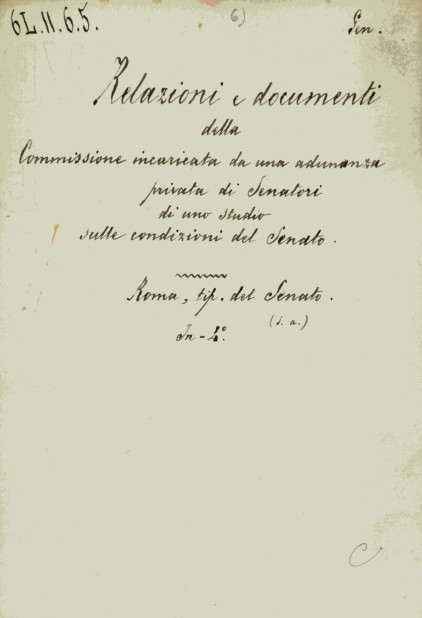 6L.11.6.5. 6) Gen.
Relazioni e documenti
della
Commissione incaricata da una adunanza
privata di Senatori
di uno studio
sulle condizioni del Senato.
Roma, tip. del Senato.
(s. a.)
In-4°.
C